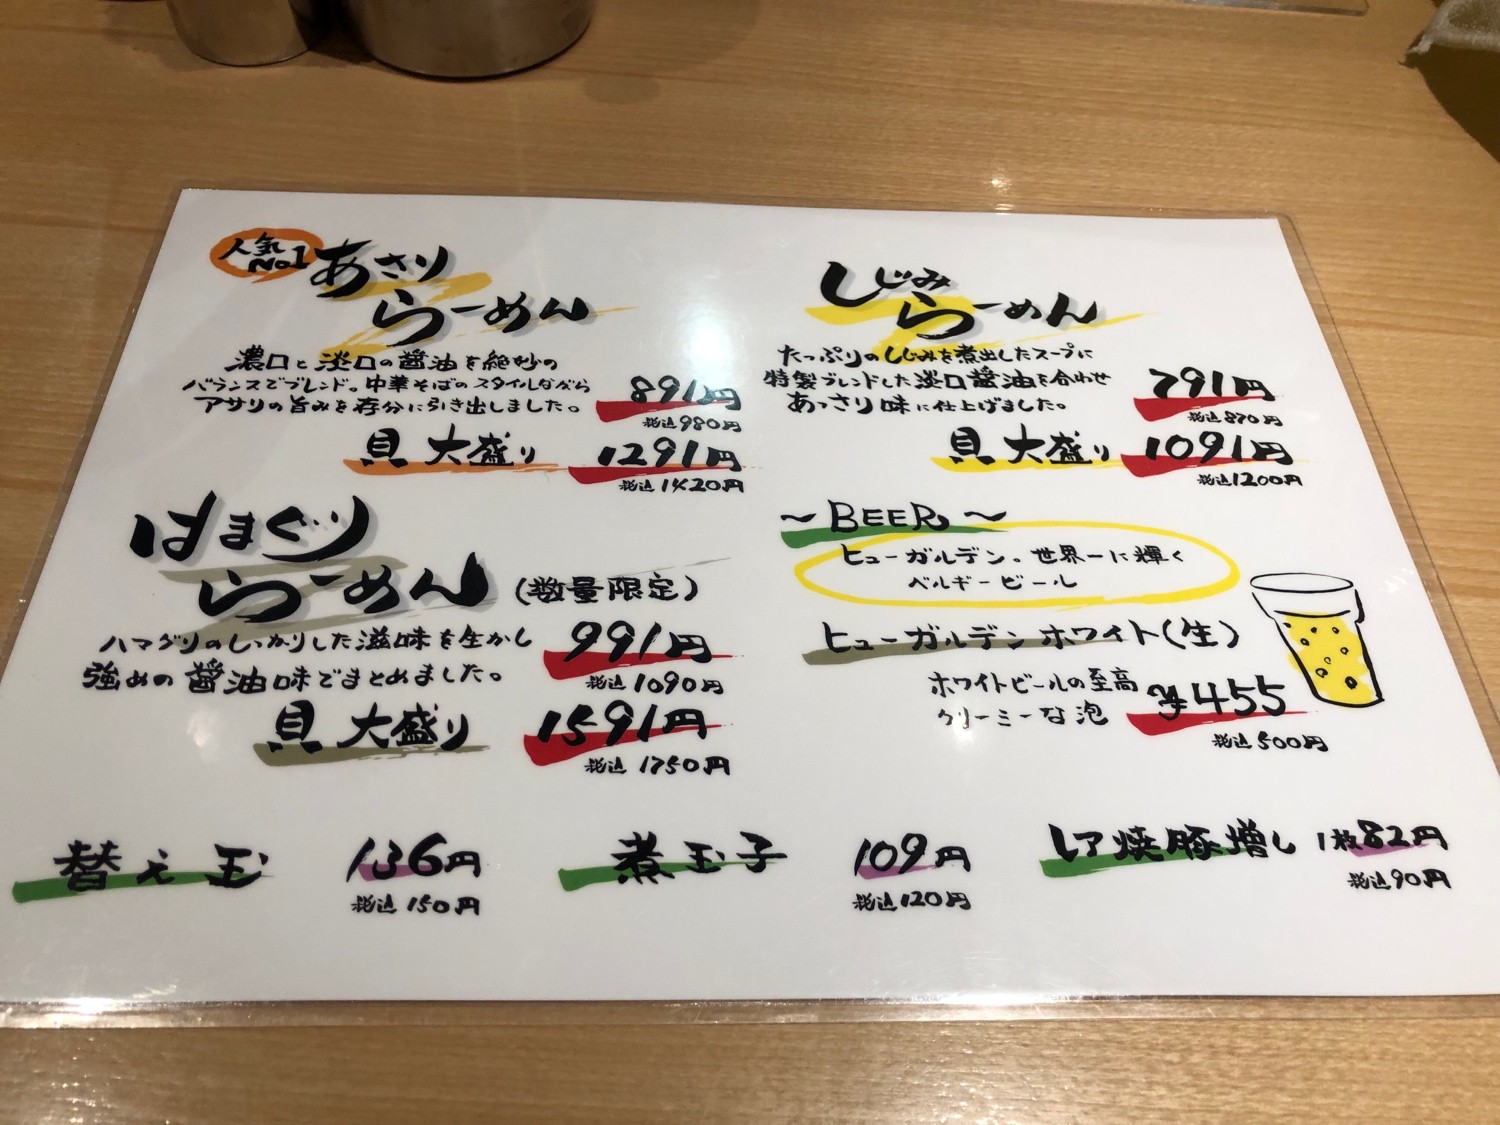 人気
No1
あさり
らーめん
濃口と淡口の醤油を絶妙の
バランスでブレンド。中華そばのスタイルながら
アサリの旨みを存分に引き出しました。
891円
税込980円
貝 大盛り 1291円
税込1420円
しじみ
らーめん
たっぷりのしじみを煮出したスープに
特製ブレンドした淡口醤油を合わせ
あっさり味に仕上げました。
791円
税込870円
貝 大盛り 1091円
税込1200円
はまぐり
らーめん(数量限定)
ハマグリのしっかりした滋味を生かし
強めの醤油味でまとめました。
991円
税込1090円
貝 大盛り 1591円
税込1750円
～BEER～
ヒューガルデン。世界一に輝く
ベルギービール
ヒューガルデンホワイト(生)
ホワイトビールの至高
クリーミーな泡
¥455
税込500円
替え玉 136円
税込150円
煮玉子 109円
税込120円
レア焼豚増し 1枚82円
税込90円